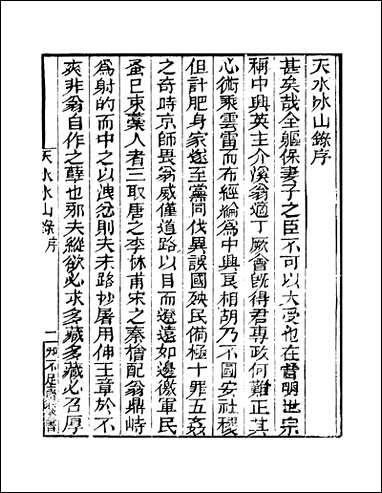 天水冰山錄序
甚矣哉全軀保妻子之臣不可以大受也在昔明世宗
稱中興英主介溪翁適丁厥會旣得君專政何難正其
心術乘雲雷而布經綸爲中興良相胡乃不圖安社稷
但計肥身家遂至黨同伐異誤國殃民備極十罪五姦
之奇時京師畏翁威僅道路以目而遼遠如邊徼軍民
蚤已束藁人者三取唐之李林甫宋之秦檜配翁鼎峙
爲射的而中之以洩忿則夫末路抄屠用伸王章於不
爽非翁自作之孽也邪夫縱欲必求多藏多藏必召厚
天水冰山錄 序
一 知不足齋叢書